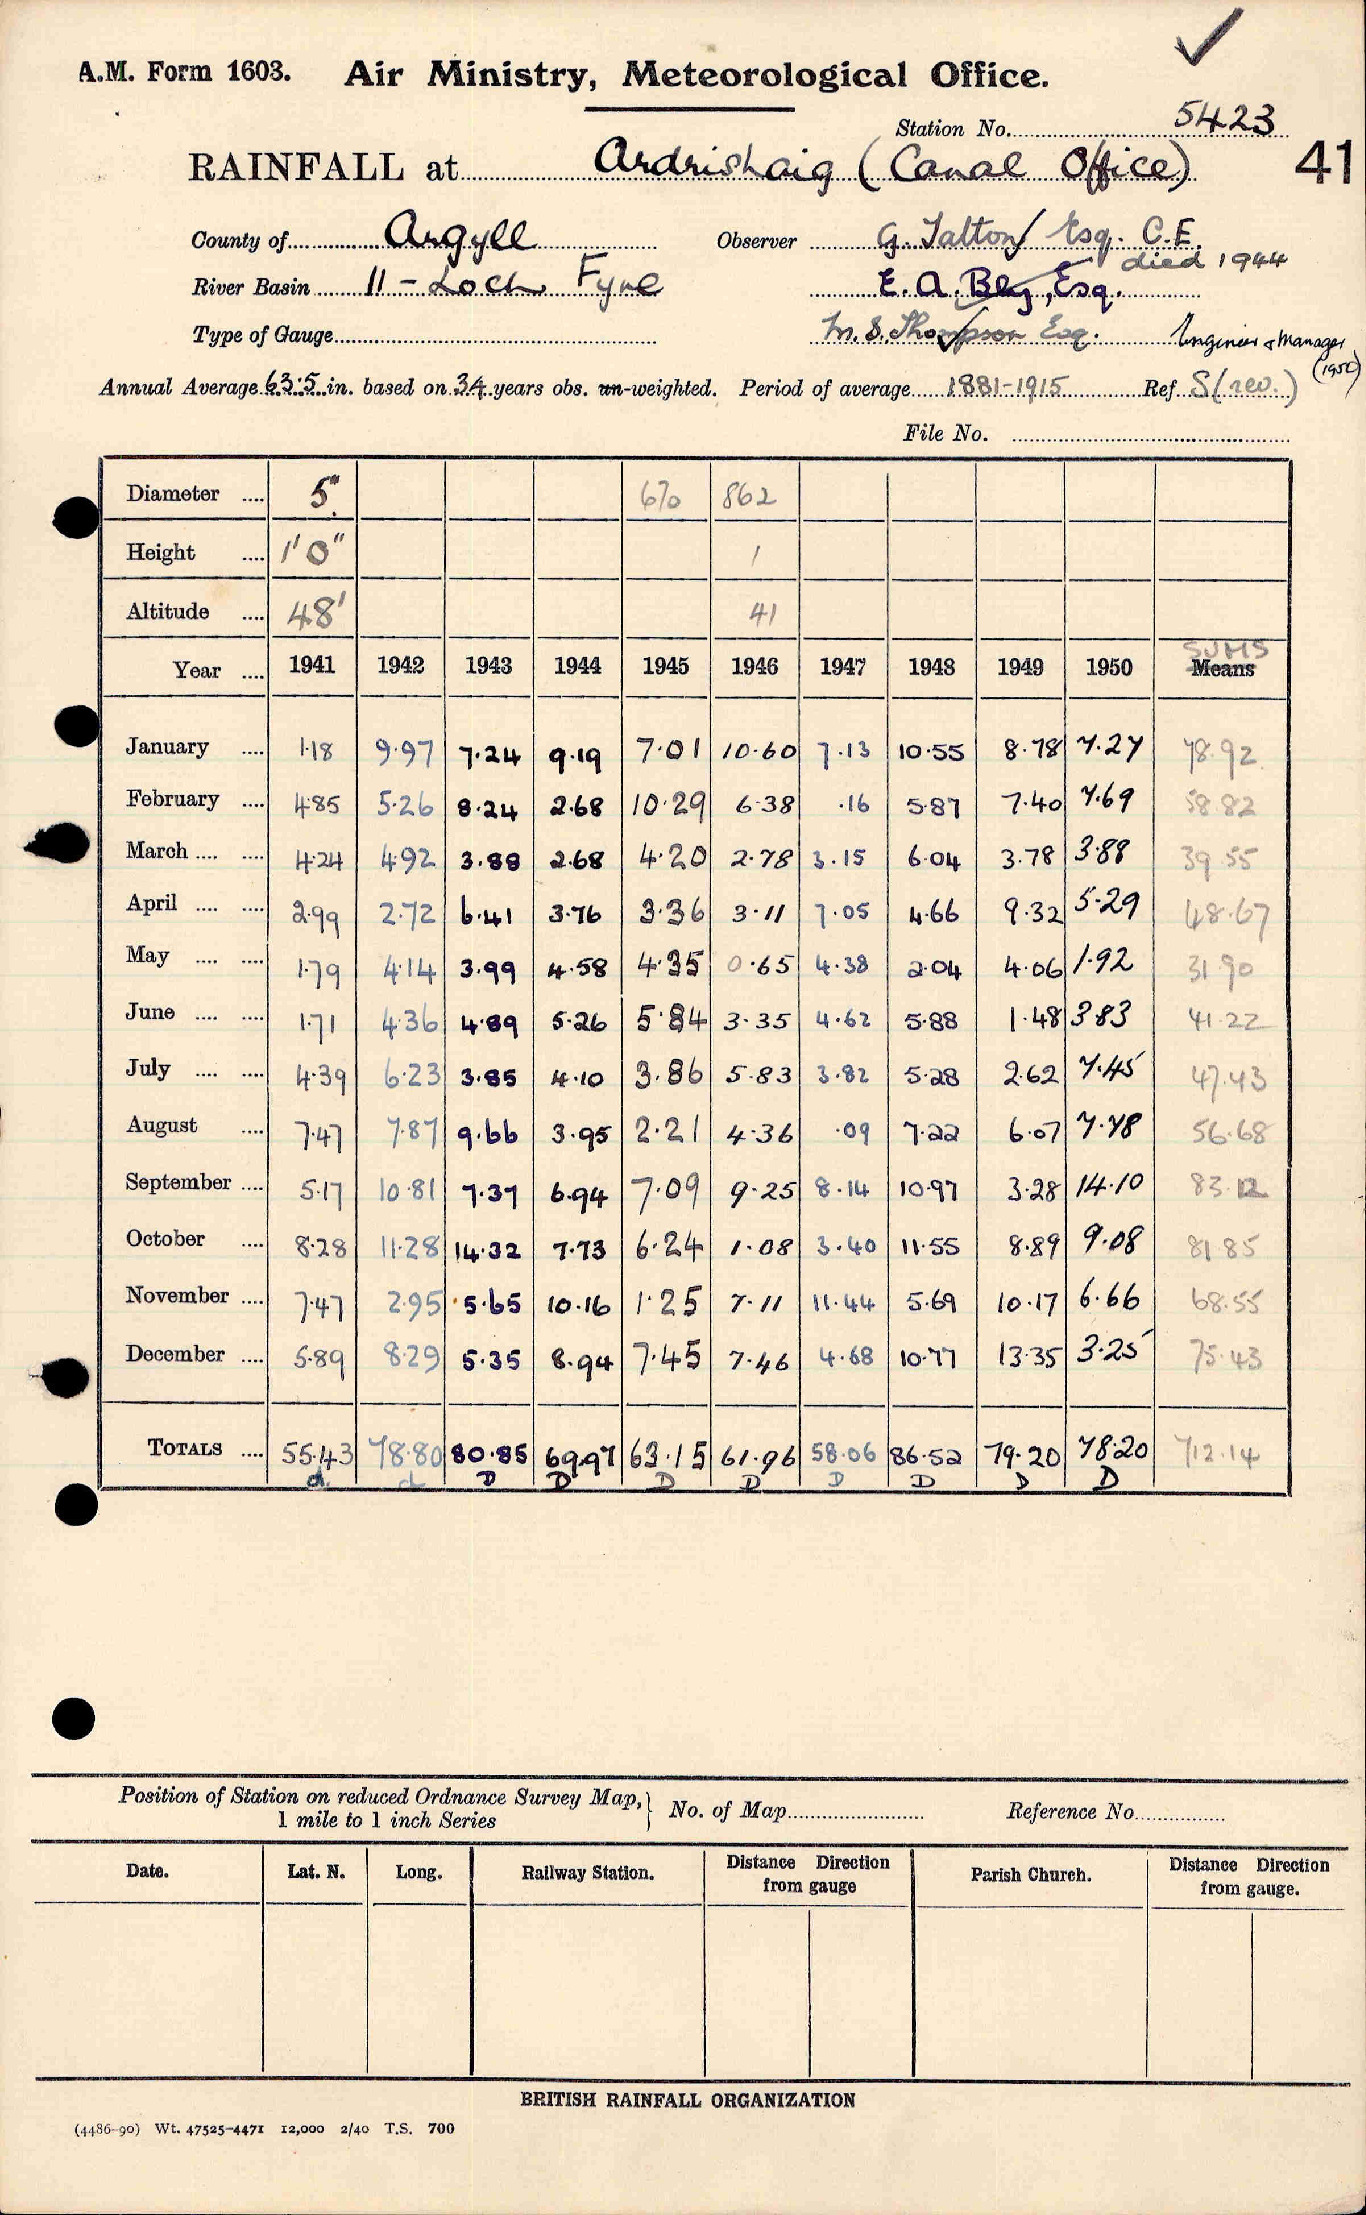 A.M. Form 1603. Air Ministry, Meteorological Office.
Station No. 5423
RAINFALL at Ardrishaig (Canal Office) 41
County of Argyll Observer G. Talton Esq. C.E.
died 1944
River Basin 11 - Loch Fyne E. A. Bly, Esq.
Type of Gauge M. S. Thompson Esq. Engineer & Manager
(1950)
Annual Average 63.5 in. based on 34 years obs. un-weighted. Period of average 1881-1915 Ref. S (rev.)
File No.
Diameter 5" 6/0 862
Height 1' 0" 1
Altitude 48' 41
SUMS
Year 1941 1942 1943 1944 1945 1946 1947 1948 1949 1950 Means
January 1.18 9.97 7.24 9.19 7.01 10.60 7.13 10.55 8.78 7.27 78.92
February 4.85 5.26 8.24 2.68 10.29 6.38 .16 5.87 7.40 7.69 58.82
March 4.24 4.92 3.88 2.68 4.20 2.78 3.15 6.04 3.78 3.88 39.55
April 2.99 2.72 6.41 3.76 3.36 3.11 7.05 4.66 9.32 5.29 48.67
May 1.79 4.14 3.99 4.58 4.35 0.65 4.38 2.04 4.06 1.92 31.90
June 1.71 4.36 4.89 5.26 5.84 3.35 4.62 5.88 1.48 3.83 41.22
July 4.39 6.23 3.85 4.10 3.86 5.83 3.82 5.28 2.62 7.45 47.43
August 7.47 7.87 9.66 3.95 2.21 4.36 .09 7.22 6.07 7.78 56.68
September 5.17 10.81 7.37 6.94 7.09 9.25 8.14 10.97 3.28 14.10 83.12
October 8.28 11.28 14.32 7.73 6.24 1.08 3.40 11.55 8.89 9.08 81.85
November 7.47 2.95 5.65 10.16 1.25 7.11 11.44 5.69 10.17 6.66 68.55
December 5.89 8.29 5.35 8.94 7.45 7.46 4.68 10.77 13.35 3.25 75.43
TOTALS 55.43 78.80 80.85 69.97 63.15 61.96 58.06 86.52 79.20 78.20 712.14
d d D D D D D D D D
Position of Station on reduced Ordnance Survey Map, No. of Map Reference No.
1 mile to 1 inch Series
Date. Lat. N. Long. Railway Station. Distance Direction from gauge Parish Church. Distance Direction from gauge.
BRITISH RAINFALL ORGANIZATION
(4486-90) Wt. 47525-4471 12,000 2/40 T.S. 700